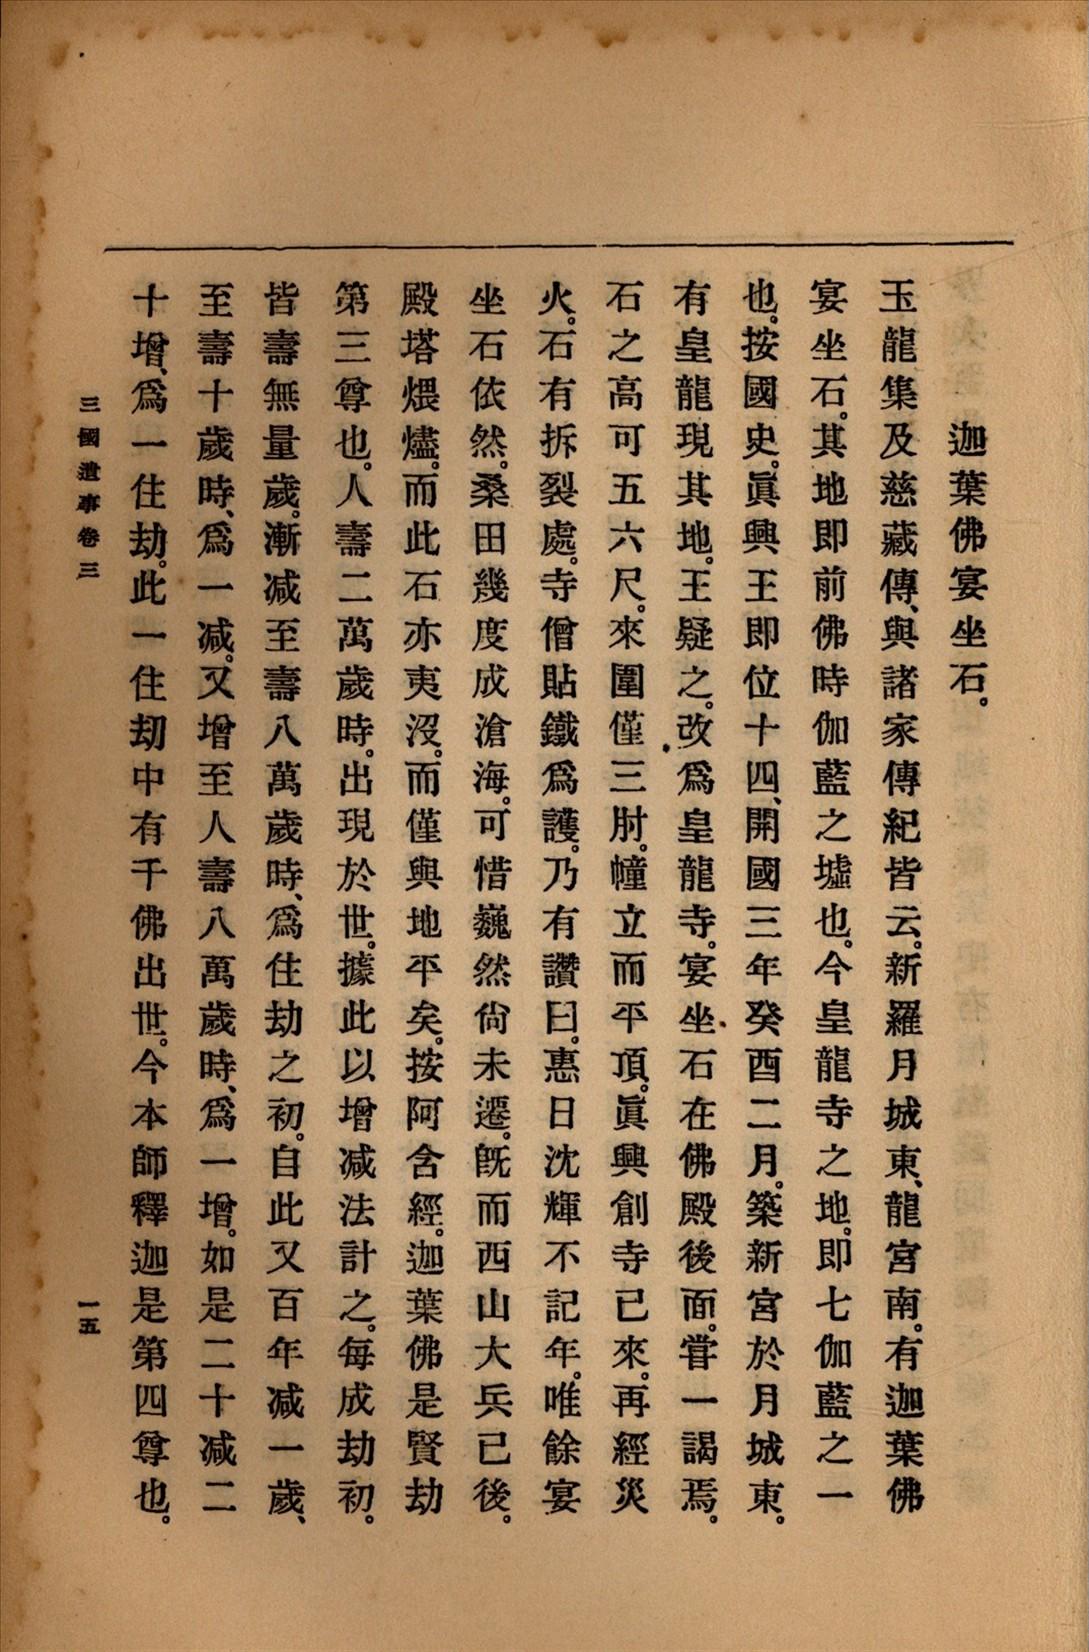 迦葉佛宴坐石。
玉龍集及慈藏傳、與諸家傳紀皆云。新羅月城東、龍宮南。有迦葉佛
宴坐石。其地即前佛時伽藍之墟也。今皇龍寺之地。即七伽藍之一
也。按國史。眞興王即位十四、開國三年癸酉二月。築新宮於月城東。
有皇龍現其地。王疑之。改爲皇龍寺。宴坐石在佛殿後面。甞一謁焉。
石之高可五六尺。來圍僅三肘。幢立而平頂。眞興創寺已來。再經災
火。石有拆裂處。寺僧貼鐵爲護。乃有讚曰。惠日沈輝不記年。唯餘宴
坐石依然。桑田幾度成滄海。可惜巍然尙未遷。旣而西山大兵已後。
殿塔煨燼。而此石亦夷沒。而僅與地平矣。按阿含經。迦葉佛是賢劫
第三尊也。人壽二萬歲時。出現於世。據此以增减法計之。每成劫初。
皆壽無量歲。漸减至壽八萬歲時、爲住劫之初。自此又百年减一歲、
至壽十歲時、爲一减。又增至人壽八萬歲時、爲一增。如是二十减二
十增、爲一住劫。此一住劫中有千佛出世。今本師釋迦是第四尊也。
三國遺事卷三
一五